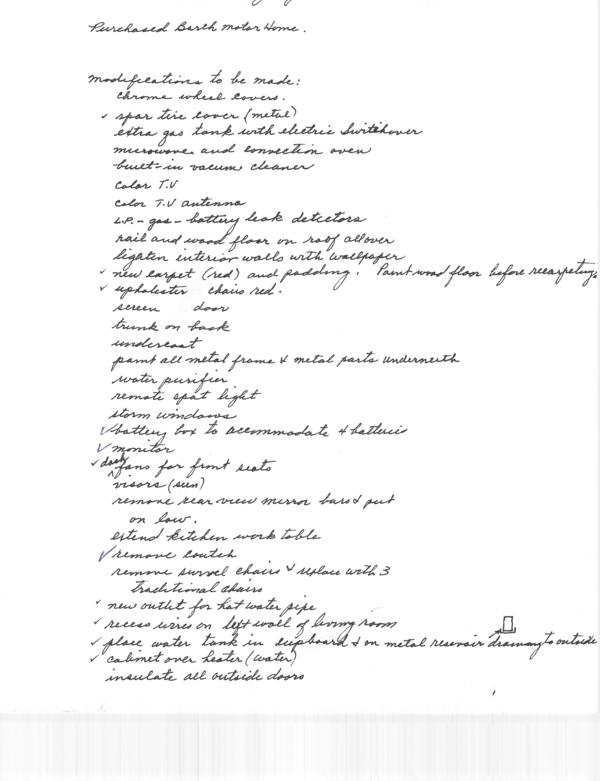 Purchased Barth Motor Home.
Modifications to be made:
chrome wheel covers.
✓ spar tire cover (metal)
extra gas tank with electric switchover
microwave and convection oven
built-in vacum cleaner
color T.V
color T.V antenna
L.P. - gas - battery leak detectors
rail and wood floor on roof all over
lighten interior walls with wallpaper
✓ new carpet (red) and padding. Paint wood floor before recarpeting
✓ upholester chairs red.
screen door
trunk on back
undercoat
paint all metal frame & metal parts underneith
water purifier
remote spot light
storm windows
✓ battery box to accommodate 4 batteries
✓ monitor
✓ dash fans for front seats
visors (sun)
remove rear view mirror bars & put
on low.
extend kitchen work table
✓ remove coutch
remove swivel chairs & replace with 3
traditional chairs
✓ new outlet for hot water pipe
✓ recess wires on left wall of living room
✓ place water tank in cupboard & on metal resevoir drawing to outside
✓ cabinet over heater (water)
insulate all outside doors